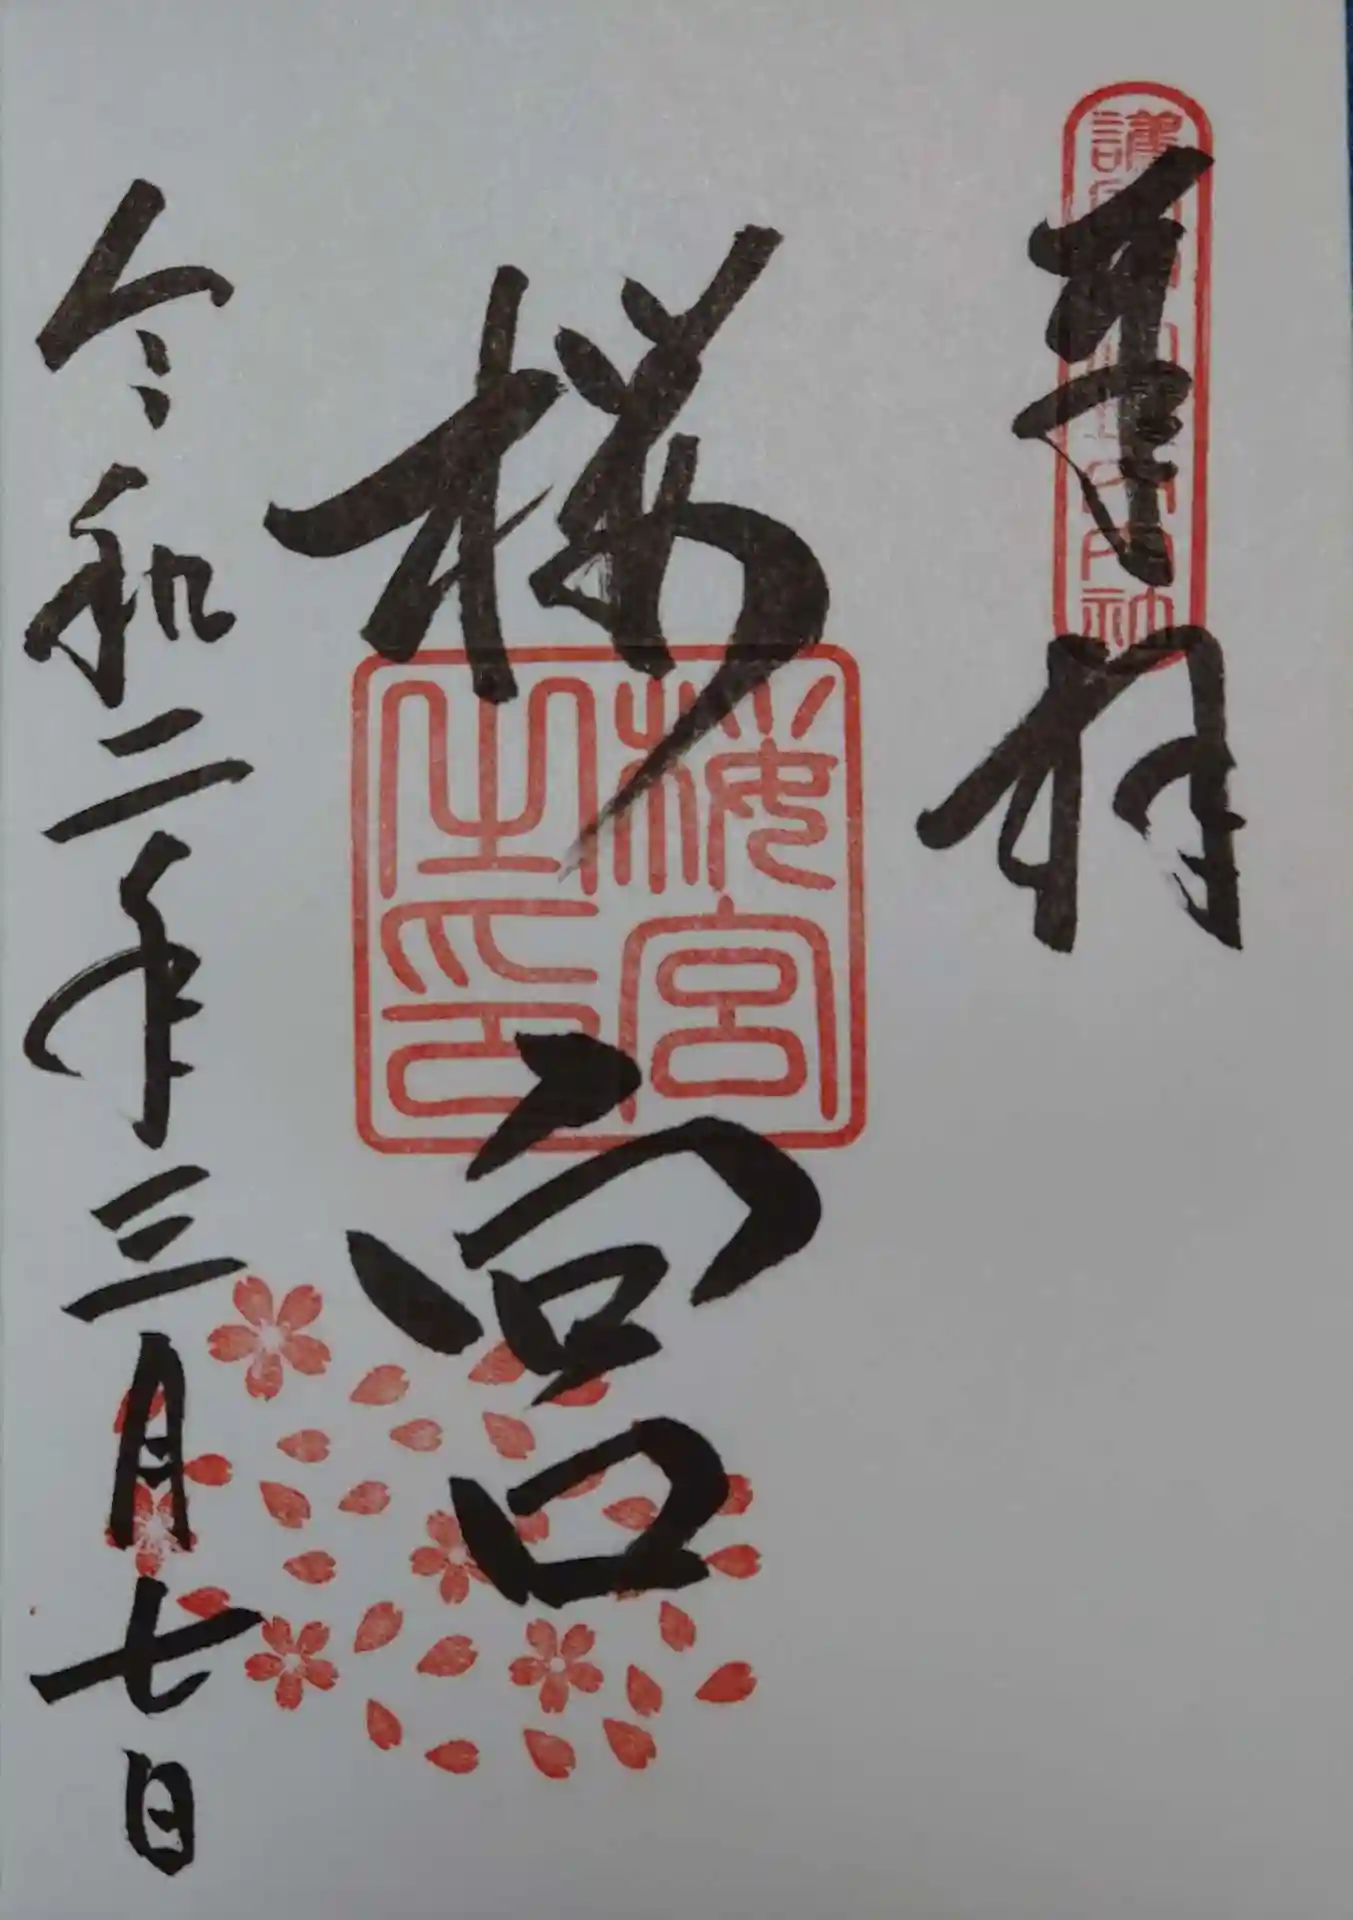 奉拝
桜宮
桜宮
之印
令和二年三月七日